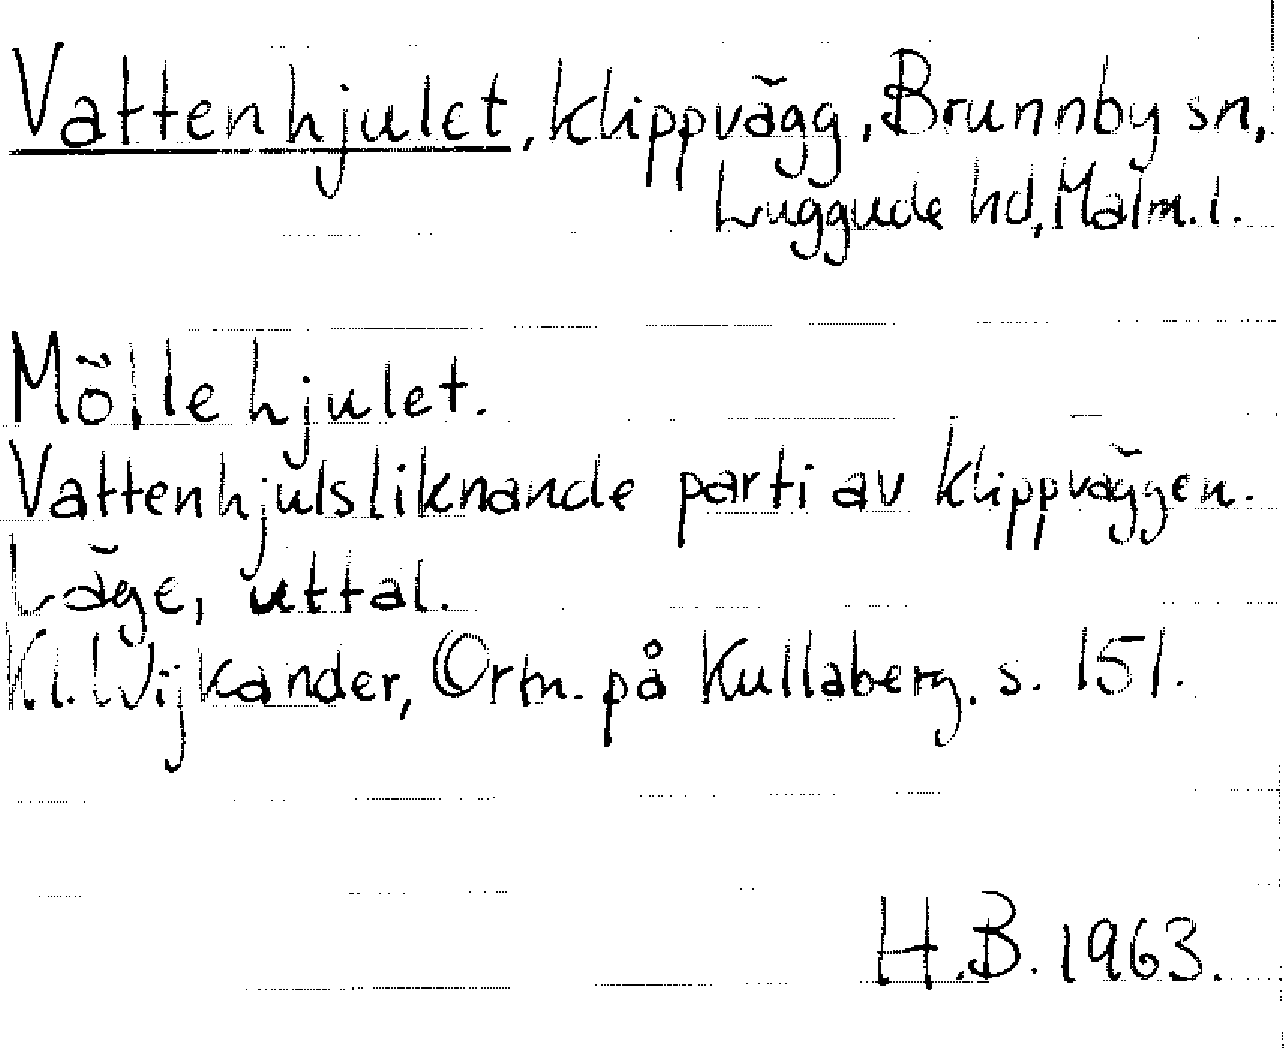 Vattenhjulet, klippvägg, Brunnby sn,
Luggude hd, Malm. l.
Möllehjulet.
Vattenhjulsliknande parti av klippväggen.
Läge, uttal.
Kl. Wijkander, Ortn. på Kullaberg. s. 151.
H.B. 1963.